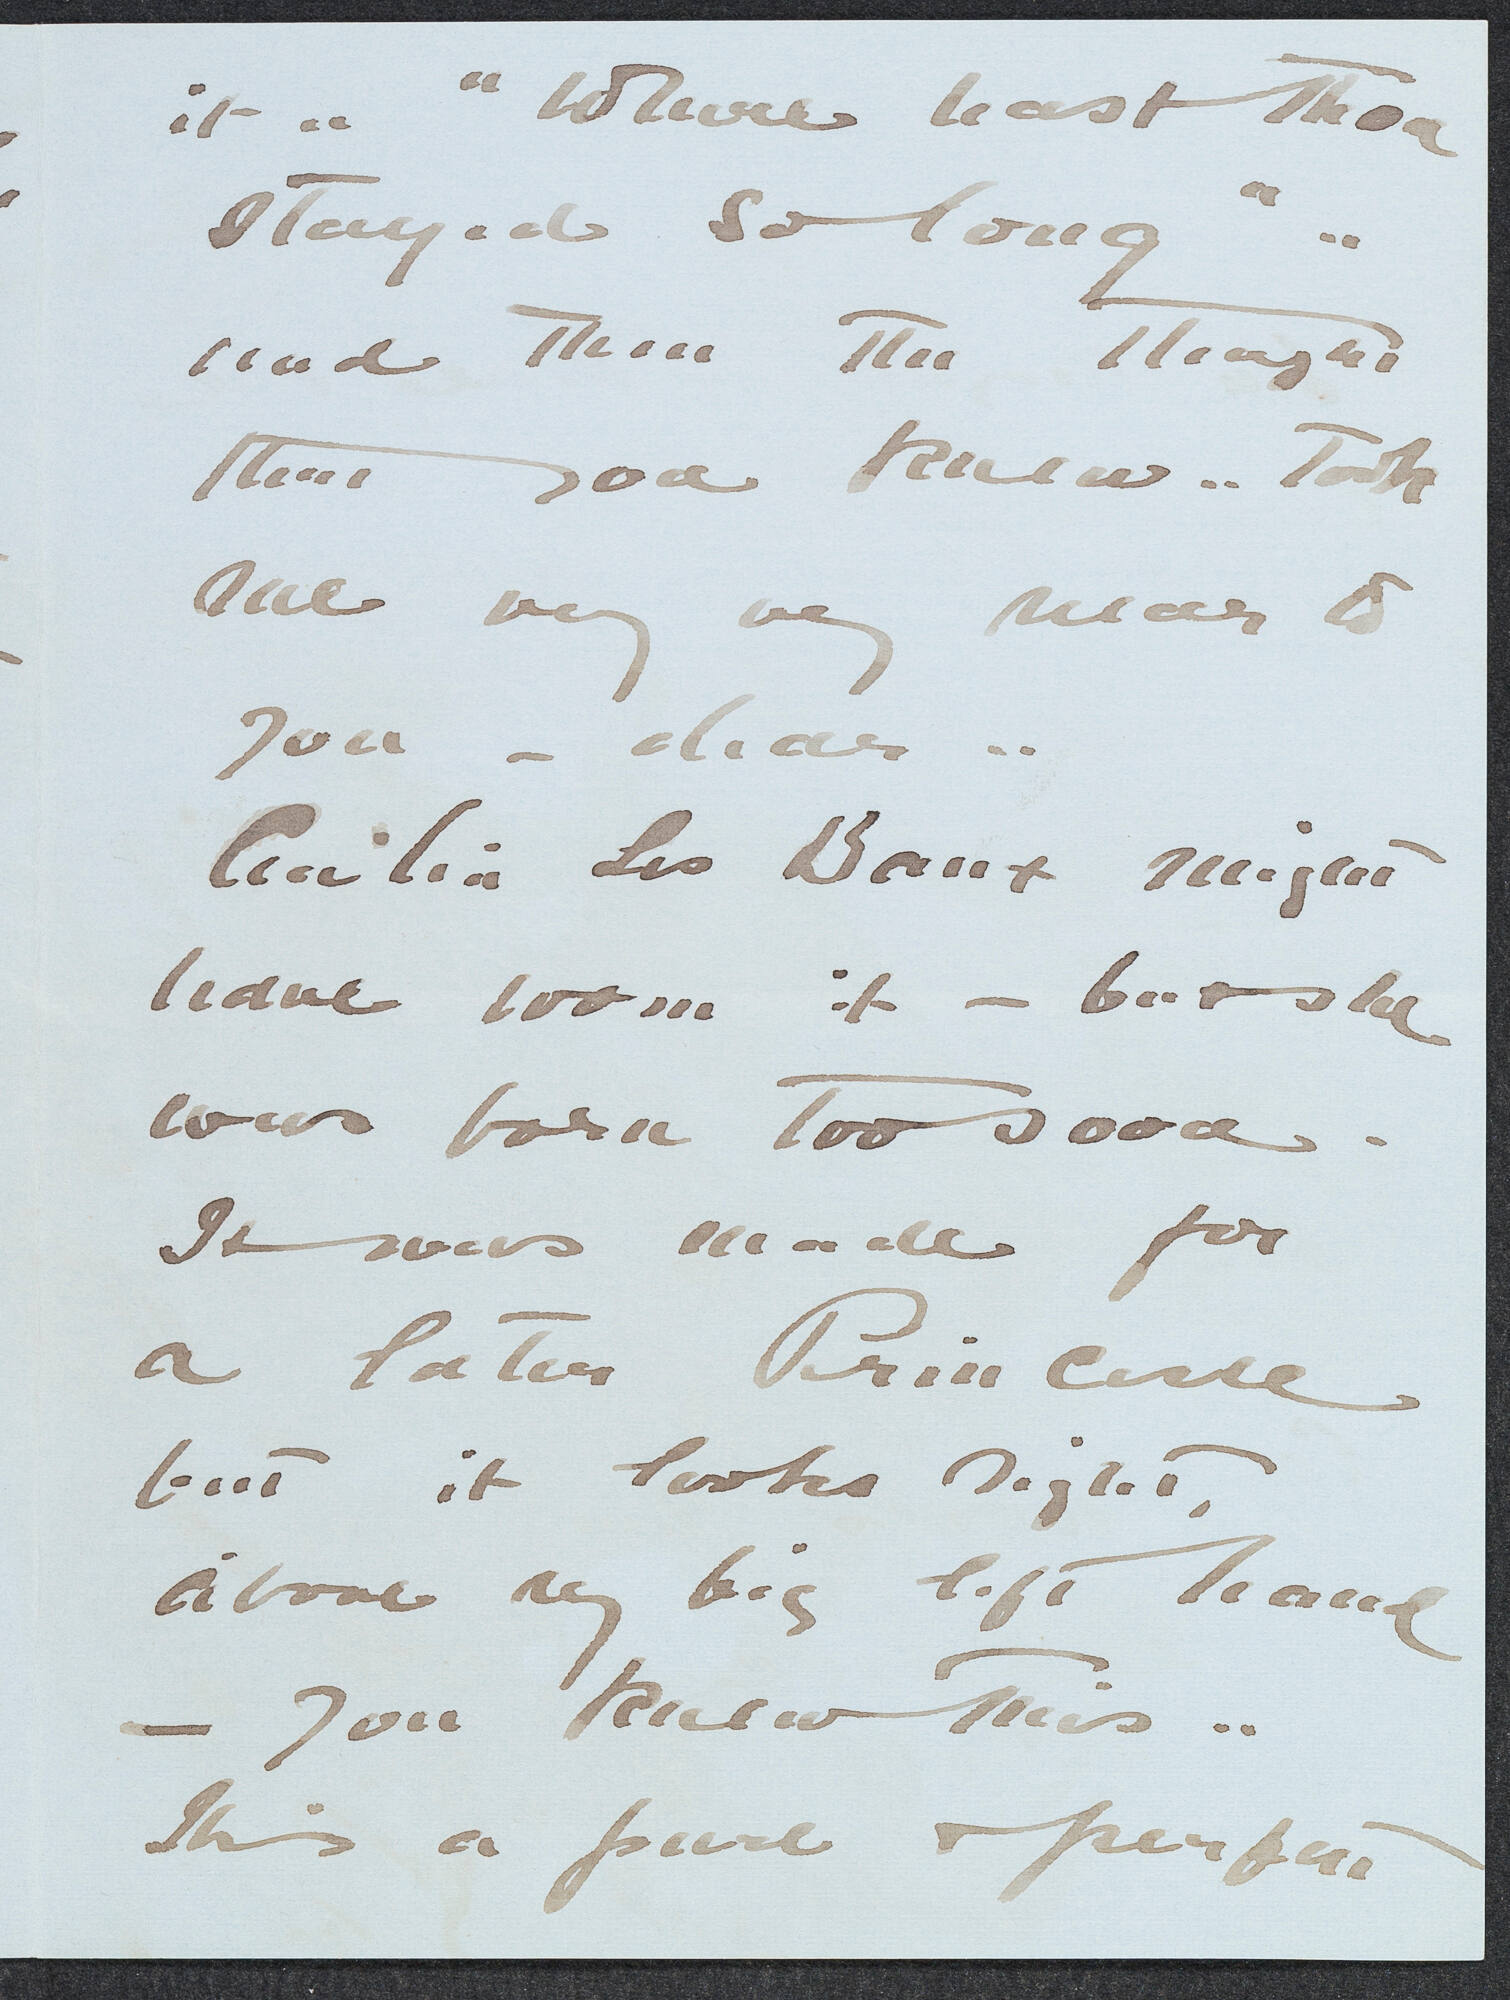 it .. "Where hast Thou
stayed so long" ..
and then the thought
that you knew .. Took
me very very near to
you - dear ..
Cecilia des Baux might
have worn it - but she
was born too soon -
It was made for
a later Princesse
but it looks right,
above my big left hand
- you knew this ..
It is a pure & perfect